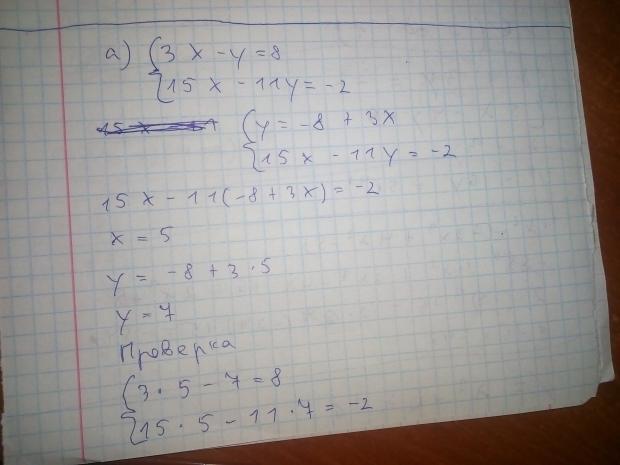 а) {3x - y = 8
{15x - 11y = -2
{y = -8 + 3x
{15x - 11y = -2
15x - 11(-8 + 3x) = -2
x = 5
y = -8 + 3 · 5
y = 7
Проверка
{3 · 5 - 7 = 8
{15 · 5 - 11 · 7 = -2